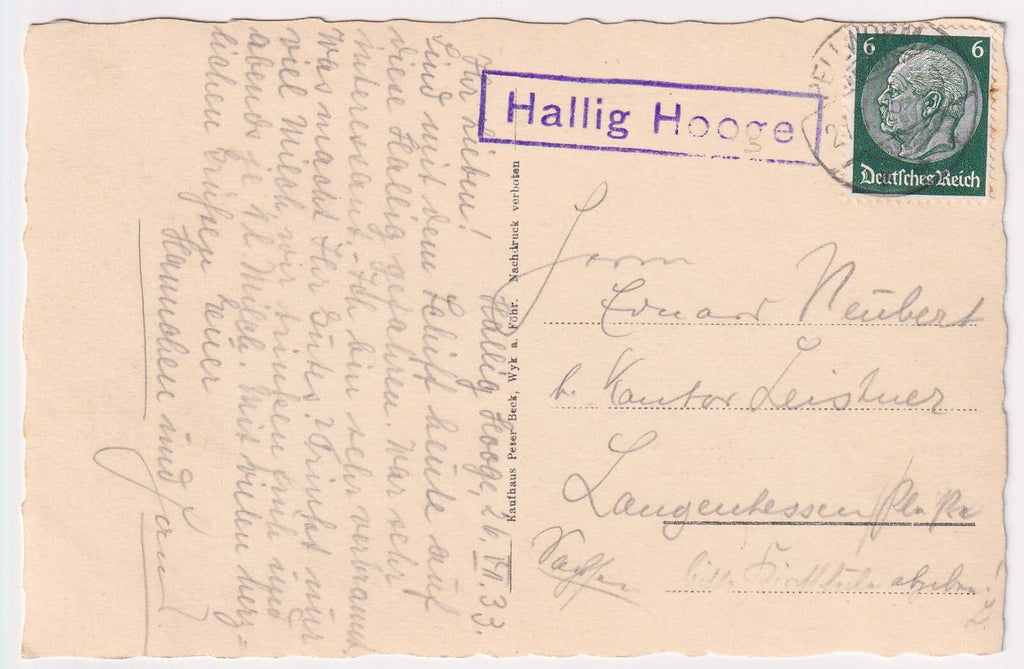 Hallig Hooge, 26. VII. 33.
Ihr Lieben!
Sind mit dem Schiff heute auf
diese Hallig gefahren. War sehr
interessant. Ich bin sehr verbrannt.
Was macht Ihr Gutes? Trinkst nur
viel Milch wir trinken auch und
abends je 1 l Milch. Mit vielen herz-
lichen Grüßen Euer
Hannchen und
Kaufhaus Peter Beck, Wyk a. Föhr. Nachdruck verboten
Hallig Hooge
PELLWORM
6 6
Deutsches Reich
Herrn
Eduard Neubert
b. Kantor Leistner
Langenhessen
Sachsen
bitte abgeben!